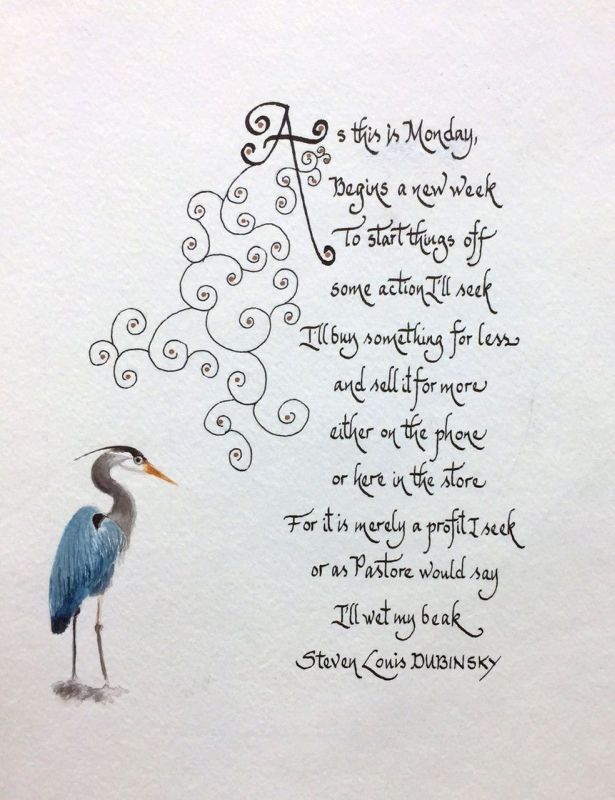 As this is Monday,
Begins a new week
To start things off
some action I'll seek
I'll buy something for less
and sell it for more
either on the phone
or here in the store
For it is merely a profit I seek
or as Pastore would say
I'll wet my beak
Steven Louis DUBINSKY